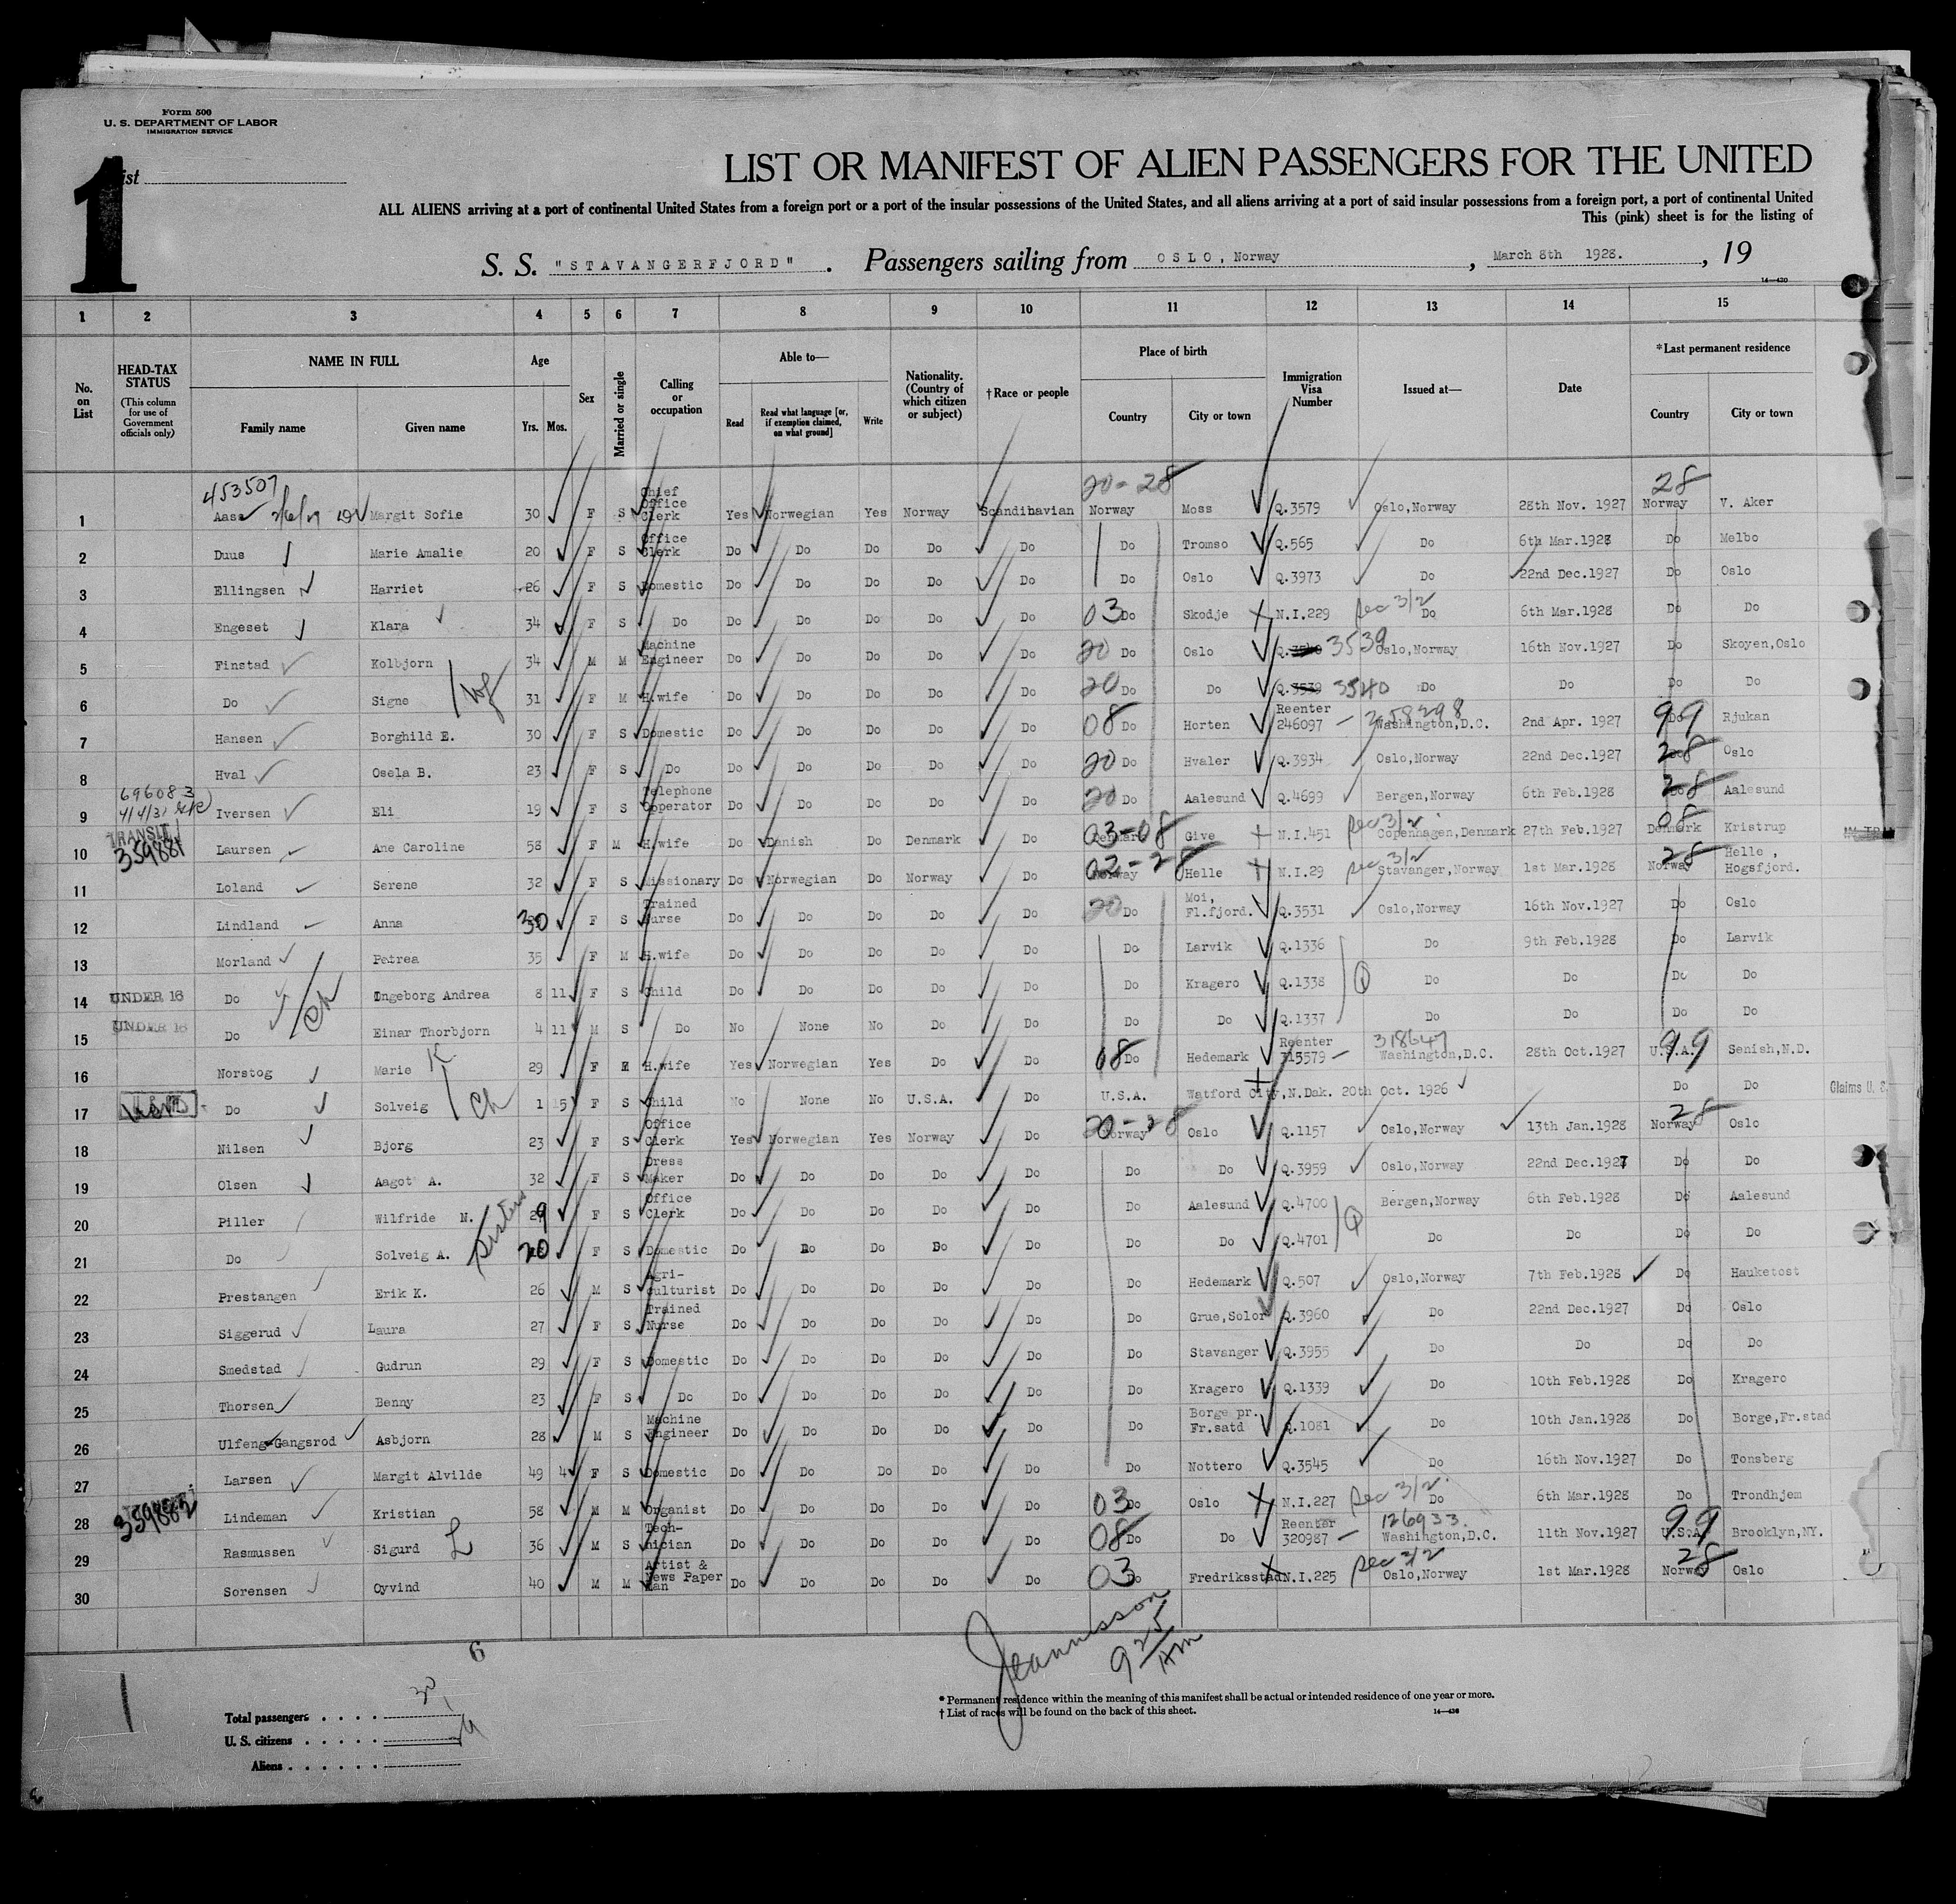 Form 500
U. S. DEPARTMENT OF LABOR
IMMIGRATION SERVICE
1
LIST OR MANIFEST OF ALIEN PASSENGERS FOR THE UNITED
ALL ALIENS arriving at a port of continental United States from a foreign port or a port of the insular possessions of the United States, and all aliens arriving at a port of said insular possessions from a foreign port, a port of continental United
This (pink) sheet is for the listing of
S. S. "STAVANGERFJORD". Passengers sailing from OSLO, Norway, March 8th 1928., 19
14—430
1 2 3 4 5 6 7 8 9 10 11 12 13 14 15
No. on List
HEAD-TAX STATUS (This column for use of Government officials only)
NAME IN FULL Family name Given name
Age Yrs. Mos.
Sex
Married or single
Calling or occupation
Able to— Read Read what language [or, if exemption claimed, on what ground] Write
Nationality. (Country of which citizen or subject)
†Race or people
Place of birth Country City or town
Immigration Visa Number
Issued at—
Date
*Last permanent residence Country City or town
453507 20-28 28
1 Aase Margit Sofie 30 F S Chief Office Clerk Yes Norwegian Yes Norway Scandinavian Norway Moss Q.3579 Oslo,Norway 28th Nov. 1927 Norway V. Aker
2 Duus Marie Amalie 20 F S Office Clerk Do Do Do Do Do Do Tromso Q.565 Do 6th Mar.1928 Do Melbo
3 Ellingsen Harriet 26 F S Domestic Do Do Do Do Do Do Oslo Q.3973 Do 22nd Dec.1927 Do Oslo
4 Engeset Klara 34 F S Do Do Do Do Do Do 03 Do Skodje N.I.229 Sec 3/2 Do 6th Mar.1928 Do Do
5 Finstad Kolbjorn 34 M M Machine Engineer Do Do Do Do Do 20 Do Oslo Q. 3539 Oslo,Norway 16th Nov.1927 Do Skoyen,Oslo
6 Do Signe 31 F M H.wife Do Do Do Do Do 20 Do Do Q.3539 3540 Do Do Do Do
7 Hansen Borghild E. 30 F S Domestic Do Do Do Do Do 08 Do Horten Reenter 246097 — 258298 Washington,D.C. 2nd Apr. 1927 99 Do Rjukan
8 Hval Osela B. 23 F S Do Do Do Do Do Do 20 Do Hvaler Q.3934 Oslo,Norway 22nd Dec.1927 28 Oslo
696083
9 Iversen Eli 19 F S Telephone Opperator Do Do Do Do Do 20 Do Aalesund Q.4699 Bergen,Norway 6th Feb.1928 28 Do Aalesund
TRANSIT 359881
10 Laursen Ane Caroline 58 F M H.wife Do Danish Do Denmark Do 03-08 Denmark Give N.I.451 Sec 3/2 Copenhagen,Denmark 27th Feb.1927 08 Denmark Kristrup
11 Loland Serene 32 F S Missionary Do Norwegian Do Norway Do 03-28 Norway Helle N.I.29 Sec 3/2 Stavanger,Norway 1st Mar.1928 28 Norway Helle, Hogsfjord.
12 Lindland Anna 30 F S Trained Nurse Do Do Do Do Do 20 Do Moi, Fl.fjord. Q.3531 Oslo,Norway 16th Nov.1927 Do Oslo
13 Morland Petrea 35 F M H.wife Do Do Do Do Do Do Larvik Q.1336 Do 9th Feb.1928 Do Larvik
14 UNDER 16 Do Ingeborg Andrea 8 11 F S Child Do Do Do Do Do Do Kragero Q.1338 Do Do Do Do
15 UNDER 16 Do Einar Thorbjorn 4 11 M S Do No None No Do Do Do Do Q.1337 Do Do Do Do
16 Norstog Marie K 29 F M H.wife Yes Norwegian Yes Do Do 08 Do Hedemark Reenter 315579 — 318647 Washington,D.C. 28th Oct.1927 99 U.S.A. Senish,N.D.
17 Do Solveig Ch 1 5 F S Child No None No U.S.A. Do U.S.A. Watford City,N.Dak. 20th Oct. 1926 Do Do Claims U. S.
18 Nilsen Bjorg 23 F S Office Clerk Yes Norwegian Yes Norway Do 20-28 Norway Oslo Q.1157 Oslo,Norway 13th Jan.1928 28 Norway Oslo
19 Olsen Aagot A. 32 F S Dress Maker Do Do Do Do Do Do Do Q.3959 Oslo,Norway 22nd Dec.1927 Do Do
20 Piller Wilfride N. 29 F S Office Clerk Do Do Do Do Do Do Aalesund Q.4700 Bergen,Norway 6th Feb.1928 Do Aalesund
sisters
21 Do Solveig A. 20 F S Domestic Do Do Do Do Do Do Do Q.4701 Do Do Do Do
22 Prestangen Erik K. 26 M S Agri-culturist Do Do Do Do Do Do Hedemark Q.507 Oslo,Norway 7th Feb.1928 Do Hauketost
23 Siggerud Laura 27 F S Trained Nurse Do Do Do Do Do Do Grue,Solor Q.3960 Do 22nd Dec.1927 Do Oslo
24 Smedstad Gudrun 29 F S Domestic Do Do Do Do Do Do Stavanger Q.3955 Do Do Do Do
25 Thorsen Benny 23 F S Do Do Do Do Do Do Do Kragero Q.1339 Do 10th Feb.1928 Do Kragero
26 Ulfeng-Gangsrod Asbjorn 28 M S Machine Engineer Do Do Do Do Do Do Borge pr. Fr.satd Q.1081 Do 10th Jan.1928 Do Borge,Fr.stad
27 Larsen Margit Alvilde 49 4 F S Domestic Do Do Do Do Do Do Nottero Q.3545 Do 16th Nov.1927 Do Tonsberg
28 359882 Lindeman Kristian 58 M M Organist Do Do Do Do Do 03 Do Oslo N.I.227 Sec 3/2 Do 6th Mar.1928 Do Trondhjem
29 Rasmussen Sigurd L 36 M S Tech-nician Do Do Do Do Do 08 Do Do Reenter 320987 — 126933. Washington,D.C. 11th Nov.1927 99 U.S.A. Brooklyn,NY.
30 Sorensen Oyvind 40 M M Artist & News Paper Man Do Do Do Do Do 03 Do Fredriksstad N.I.225 Sec 3/2 Oslo,Norway 1st Mar.1928 28 Norway Oslo
6
Jeannisson
9 25 AM
Total passengers . . . . 30
U. S. citizens . . . . .
Aliens . . . . . .
* Permanent residence within the meaning of this manifest shall be actual or intended residence of one year or more.
† List of races will be found on the back of this sheet.
14—430